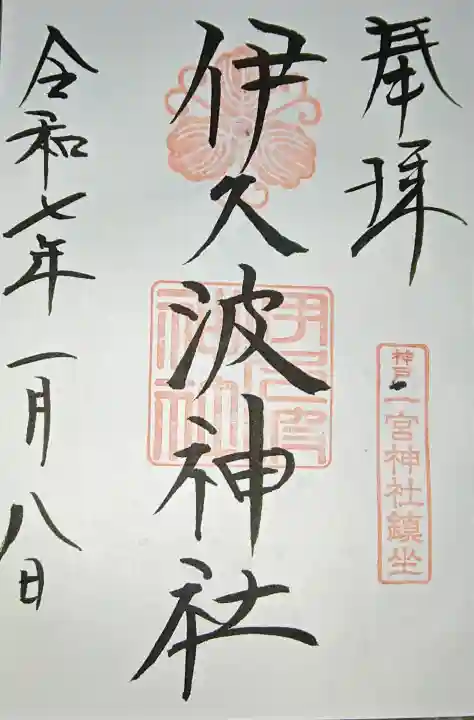 奉拝
神戸一宮神社鎮坐
伊久波神社
令和七年一月八日